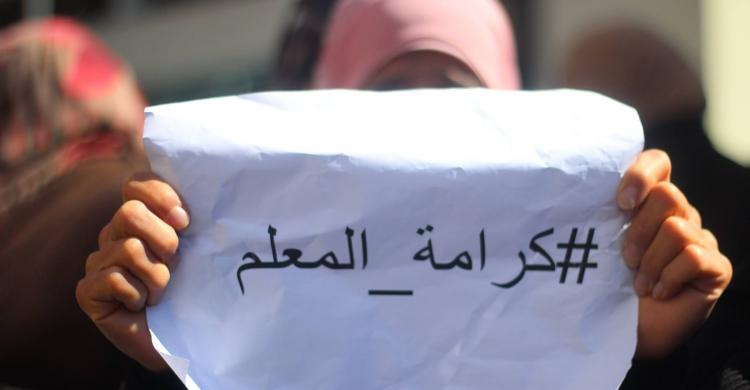 #كرامة_المعلم